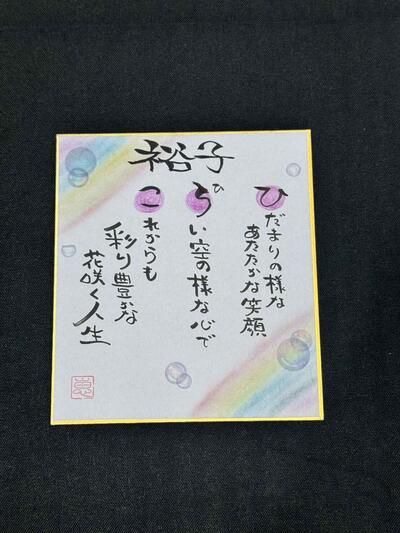 裕子
ひだまりの様な
あたたかな笑顔
ひろい空の様な心で
これからも
彩り豊かな
花咲く人生